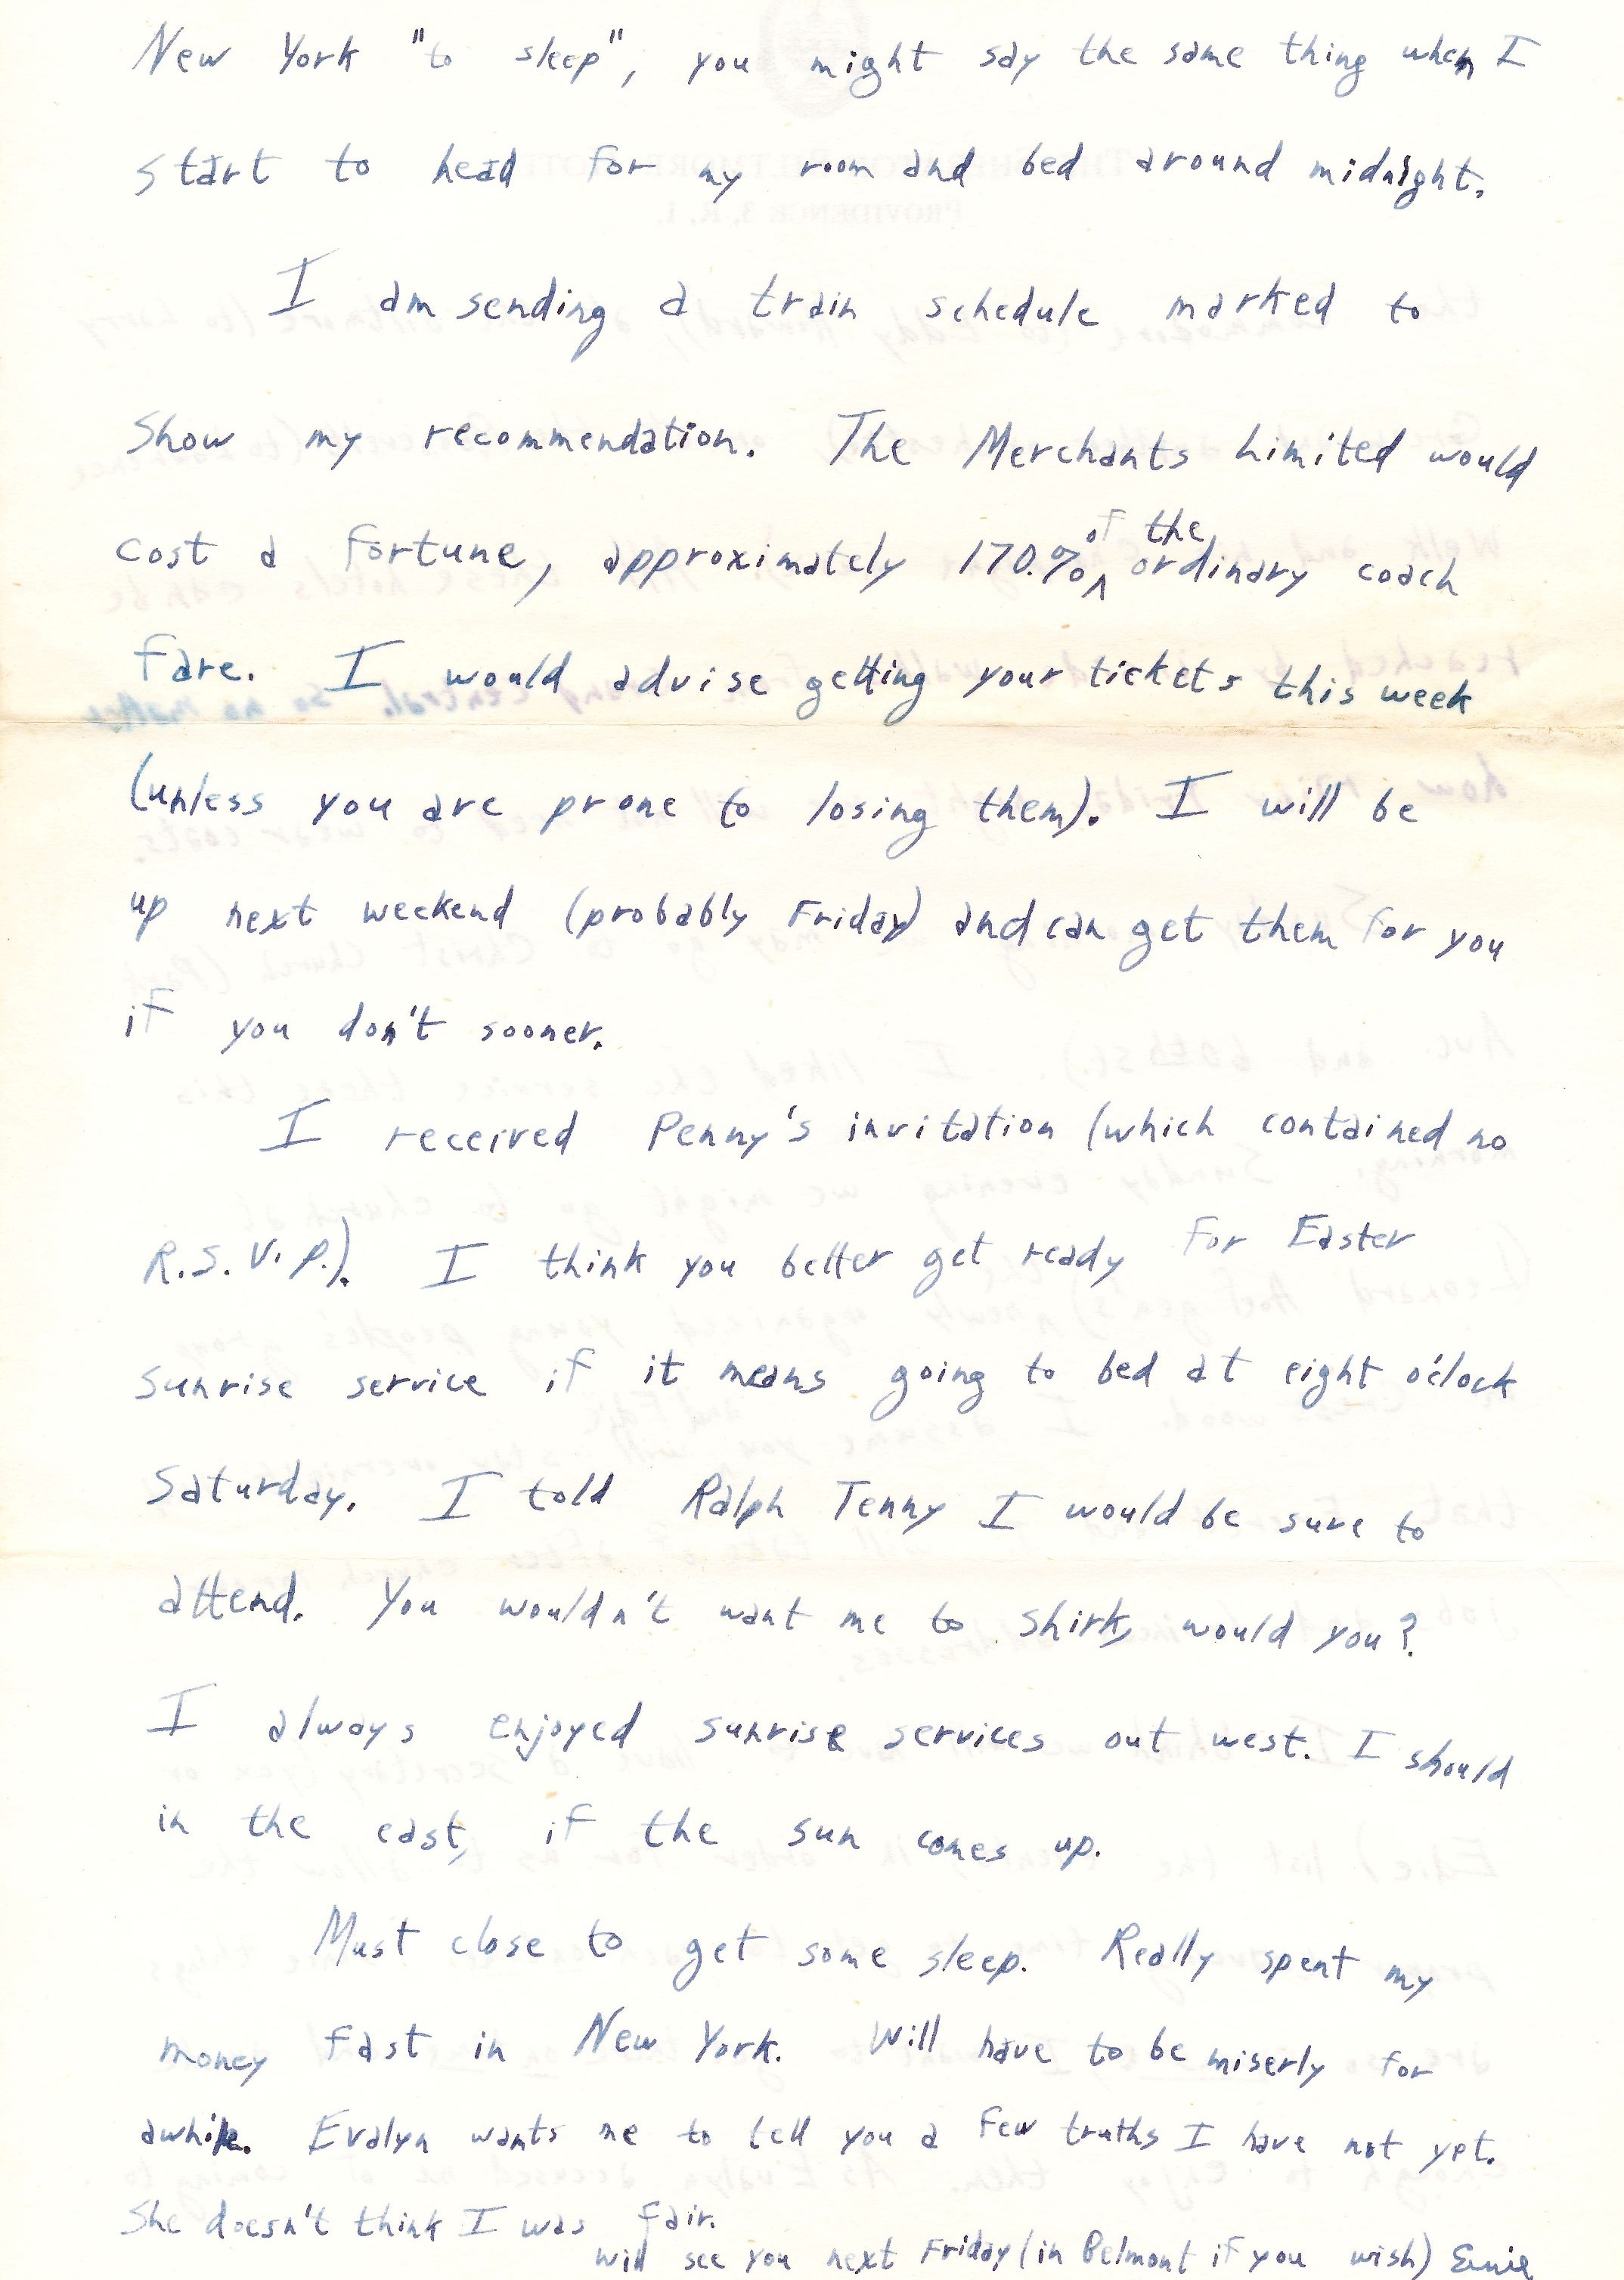 New York "to sleep", you might say the same thing when I
start to head for my room and bed around midnight.
I am sending a train schedule marked to
show my recommendation. The Merchants Limited would
cost a fortune, approximately 170% of the ordinary coach
fare. I would advise getting your tickets this week
(unless you are prone to losing them). I will be
up next weekend (probably Friday) and can get them for you
if you don't sooner.
I received Penny's invitation (which contained no
R.S.V.P.). I think you better get ready for Easter
sunrise service if it means going to bed at eight o'clock
Saturday. I told Ralph Tenny I would be sure to
attend. You wouldn't want me to shirk, would you?
I always enjoyed sunrise services out west. I should
in the east, if the sun comes up.
Must close to get some sleep. Really spent my
money fast in New York. Will have to be miserly for
awhile. Evalyn wants me to tell you a few truths I have not yet.
She doesn't think I was fair.
will see you next Friday (in Belmont if you wish) Ernie